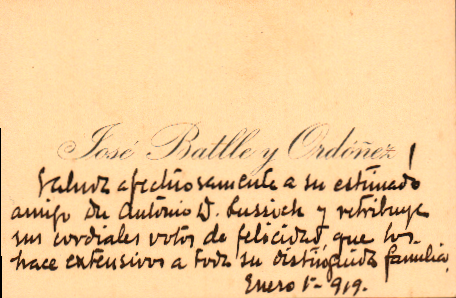 José Batlle y Ordóñez
Saluda afectuosamente a su estimado
amigo Dn Antonio D. Lussich y retribuye
sus cordiales votos de felicidad, que los
hace extensivos a toda su distinguida familia,
Enero 1º-919.